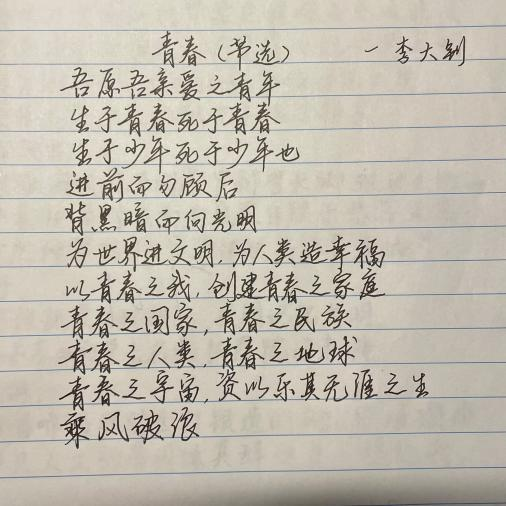 青春（节选） — 李大钊
吾愿吾亲爱之青年
生于青春死于青春
生于少年死于少年也
进前而勿顾后
背黑暗而向光明
为世界进文明，为人类造幸福
以青春之我，创建青春之家庭
青春之国家，青春之民族
青春之人类，青春之地球
青春之宇宙，资以乐其无涯之生
乘风破浪